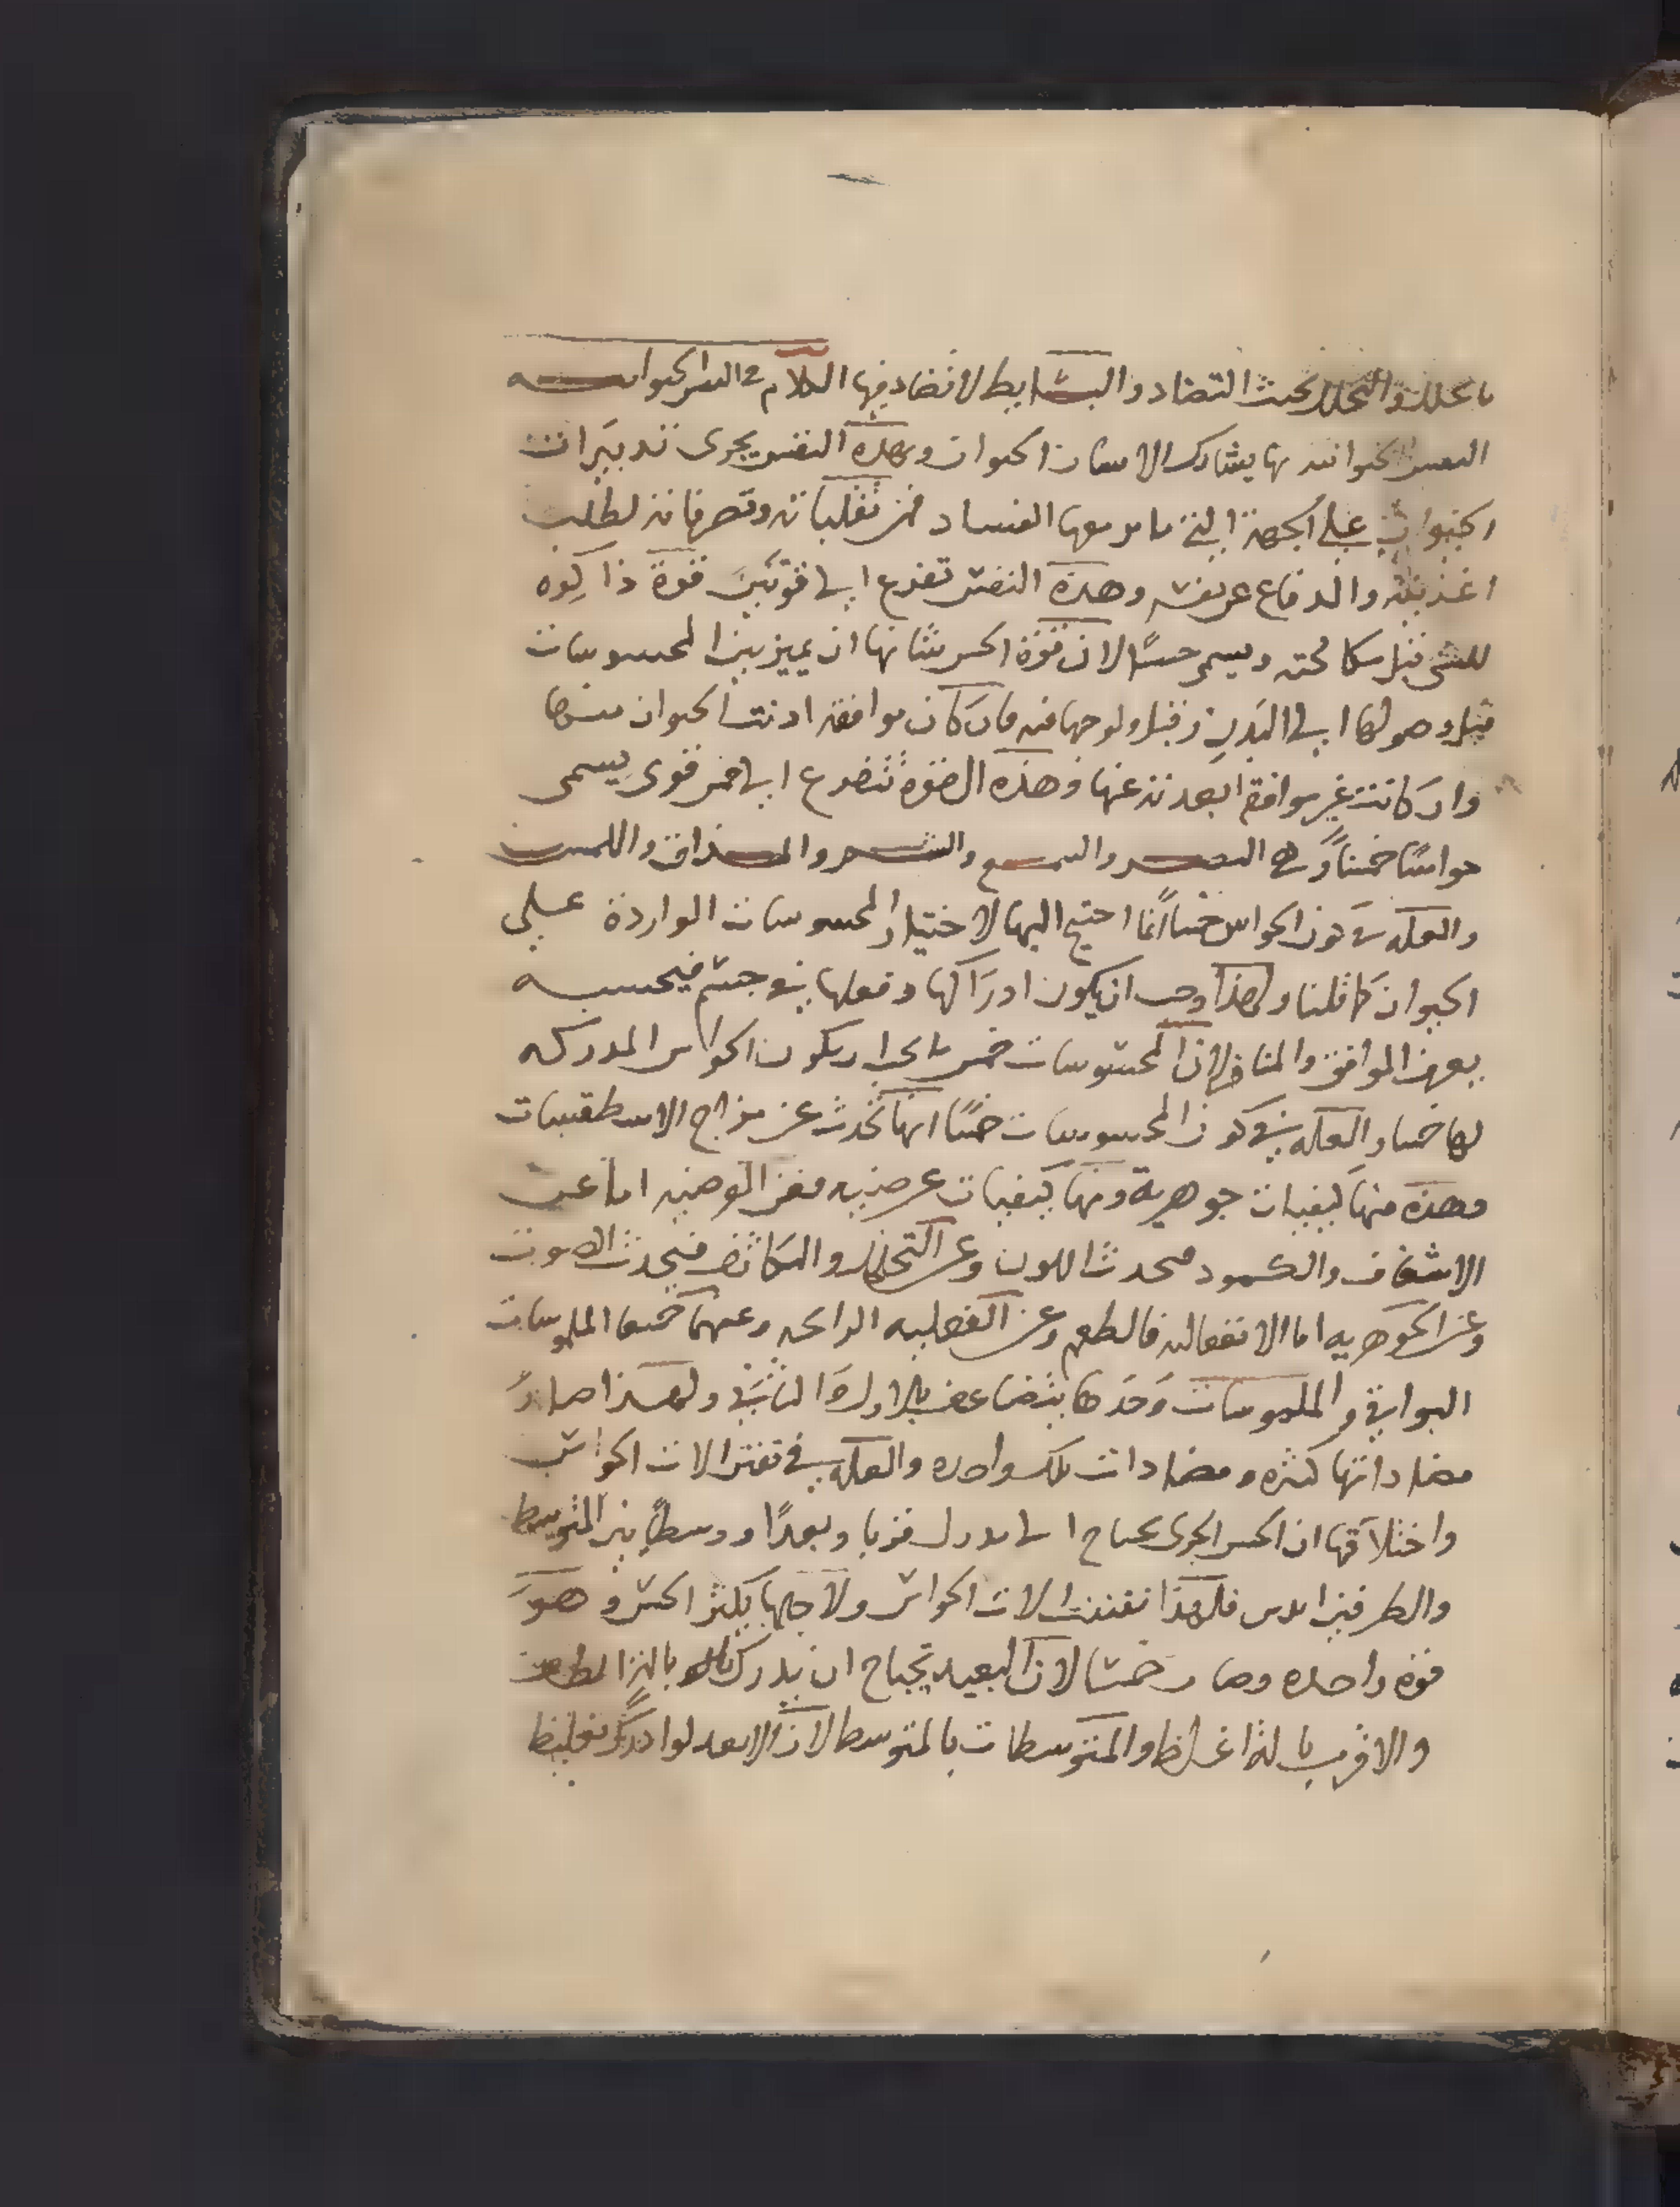 ما تحلل والتحلل بحيث التضاد والبسايط لا تضاد فيها الكلام في النفس الحيوانيه
النفس الحيوانيه بها يشارك الانسان الحيوان وبهذه النفس يجرى تدبيرات
الحيوان على الجهة التي يامر معها الفساد من تقلباته وتصرفاته لطلب
اغذيته والدفاع عن نفسه وهذه النفس تتفرع الى قوتين قوة ذاكره
للشي قبل مكافحته ويسمى حسًا لان قوة الحس شانها ان يميز بين المحسوسات
قبل وصولها الى البدن وقبل ولوجها فيه فان كان موافقه ادنت الحيوان منها
وان كانت غير موافقه ابعدته عنها وهذه القوة تتفرع الى خمس قوى يسمى
حواسًا خمسًا وهي البصر والسمع والشم والمذاق واللمس
والعله في كون الحواس خمسا انما احتيج اليها لاختيار المحسوسات الواردة على
الحيوان كما قلنا ولهذا وجب ان يكون ادراكها وفعلها في جسم فيحسبه
يعرف الموافق والمنافر لان المحسوسات خمس ما يجب ان يكون الحواس المدركه
لها خمسا والعله في كون المحسوسات خمسًا انها تحدث عن مزاج الاسطقسات
وهذه منها كيفيات جوهرية ومنها كيفيات عرضيه فعن العرضيه اما عن
الاشفاف والكمود فيحدث اللون وعن التخلخل والتكاثف فيحدث الصوت
وعن الجوهريه اما الانفعاليه فالطعم وعن الفعليه الرائحه وعنهما جميعا الملموسات
البواقي والملموسات وحدها يتضاعف بالاول والثاني ولهذا صار
مضاداتها كثره ومضادات تلك واحده والعله في تفنن الات الحواس
واختلافها ان الحس الجزى يحتاج الى يدرك قربا وبعدًا ووسطًا بين المتوسط
والطرفين فلهذا تفننت الات الحواس ولاجلها يكثر الحس وهو
قوه واحده وصار خمسا لان البعيد يحتاج ان يدرك بالة الطف
والاقرب بالة اغلظ والمتوسطات بالمتوسط لان الابعد لو ادرك بغليظ